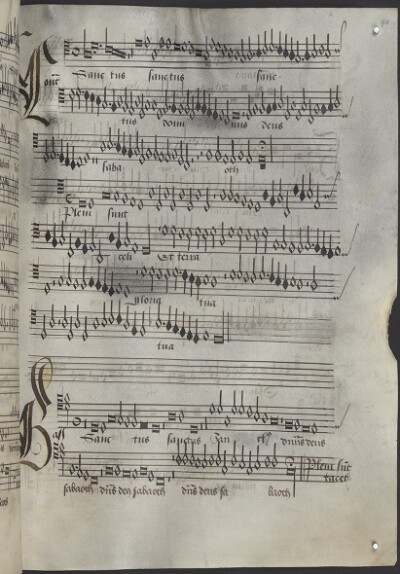 Sanc tus sanctus sanc
tus domi nus deus
saba oth
Pleni sunt
celi Et terra
gloria tua
tua
Sanc tus sanctus San ct dn̄s deus
sabaoth dn̄s deu sabaoth dn̄s deus sa baoth Pleni sūt
tacet